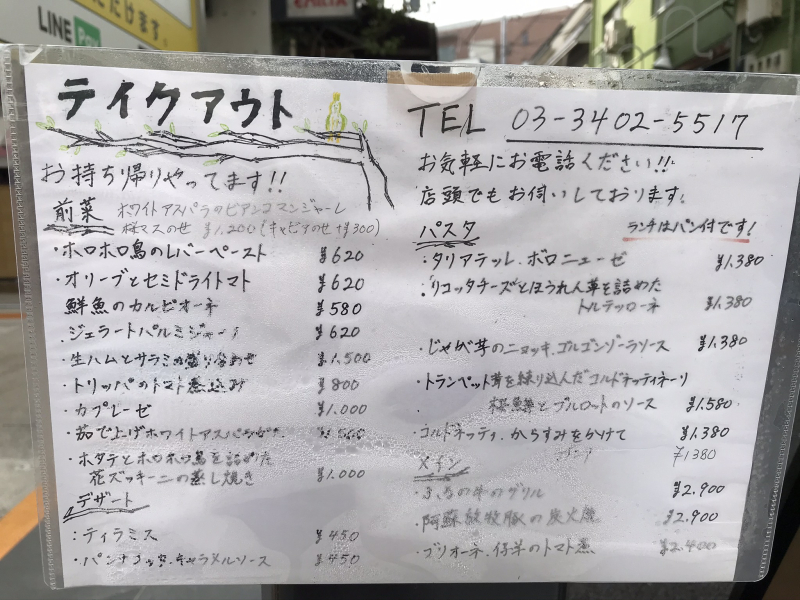 だけます。
LINE Pay
テイクアウト
お持ち帰りやってます!!
前菜
ホワイトアスパラのビアンコマンジャーレ
桜マスのせ ¥1,200 (キャビアのせ +¥300)
・ホロホロ鳥のレバーペースト ¥620
・オリーブとセミドライトマト ¥620
鮮魚のカルピオーネ ¥580
・ジェラートパルミジャーノ ¥620
・生ハムとサラミの盛り合わせ ¥1,500
・トリッパのトマト煮込み ¥800
・カプレーゼ ¥1,000
・茹で上げホワイトアスパラガス
・ホタテとホロホロ鳥を詰めた
花ズッキーニの蒸し焼き ¥1,000
デザート
:ティラミス ¥450
・パンナコッタ.キャラメルソース ¥450
TEL 03-3402-5517
お気軽にお電話ください!!
店頭でもお伺いしております。
パスタ ランチはパン付です!
・タリアテッレ.ボロニェーゼ ¥1,380
・リコッタチーズとほうれん草を詰めた
トルテッローネ ¥1,380
・じゃが芋のニョッキ.ゴルゴンゾーラソース ¥1,380
・トランペット茸を練り込んだコルドネッティネーリ
桜鱒とブルロットのソース ¥1,580
・コルドネッティ.からすみをかけて ¥1,380
¥1380
メイン
牛のグリル ¥2,900
・阿蘇放牧豚の炭火焼 ¥2,900
・ブリオーネ.仔羊のトマト煮 ¥2,400